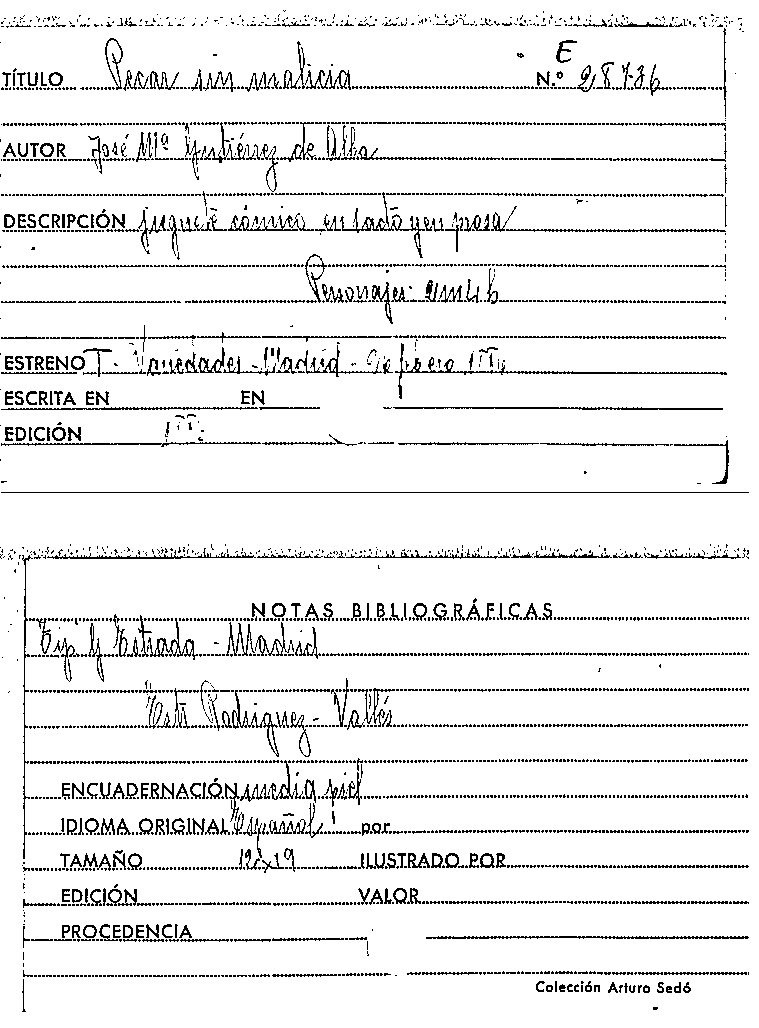 E
TÍTULO Pecar sin malicia N.º 28736
AUTOR José Mª Gutiérrez de Alba
DESCRIPCIÓN juguete cómico en 1 acto y en prosa
Personajes:
ESTRENO T. Variedades - Madrid - febrero
ESCRITA EN EN
EDICIÓN
NOTAS BIBLIOGRÁFICAS
Tip G Estrada - Madrid
Estr Rodriguez - Vallés
ENCUADERNACIÓN media piel
IDIOMA ORIGINAL Español por
TAMAÑO 12x19 ILUSTRADO POR
EDICIÓN VALOR
PROCEDENCIA
Colección Arturo Sedó